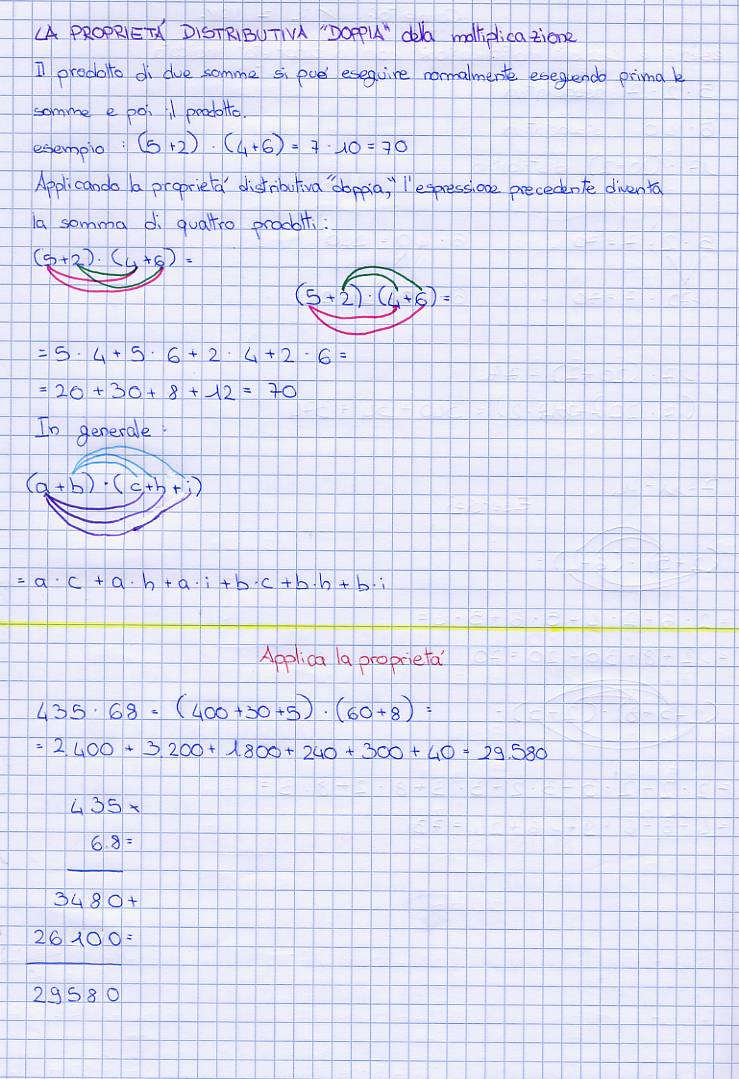 LA PROPRIETÁ DISTRIBUTIVA "DOPPIA" della moltiplicazione
Il prodotto di due somme si pué eseguire normalmente eseguendo prima le
somme e poi il prodotto.
esempio : (5+2) · (4+6) = 7 · 10 = 70
Applicando la proprietá distributiva "doppia," l'espressione precedente diventa
la somma di quattro prodotti:
(5+2) · (4+6) =
(5+2) · (4+6) =
= 5 · 4 + 5 · 6 + 2 · 4 + 2 · 6 =
= 20 + 30 + 8 + 12 = 70
In generale :
(a+b) · (c+h+i)
= a · c + a · h + a · i + b · c + b · h + b · i
Applica la proprietá
435 · 68 = (400+30+5) · (60+8) =
= 2.400 + 3.200 + 1.800 + 240 + 300 + 40 = 29.580
435 ×
6.8 =
3480 +
26100 =
29580